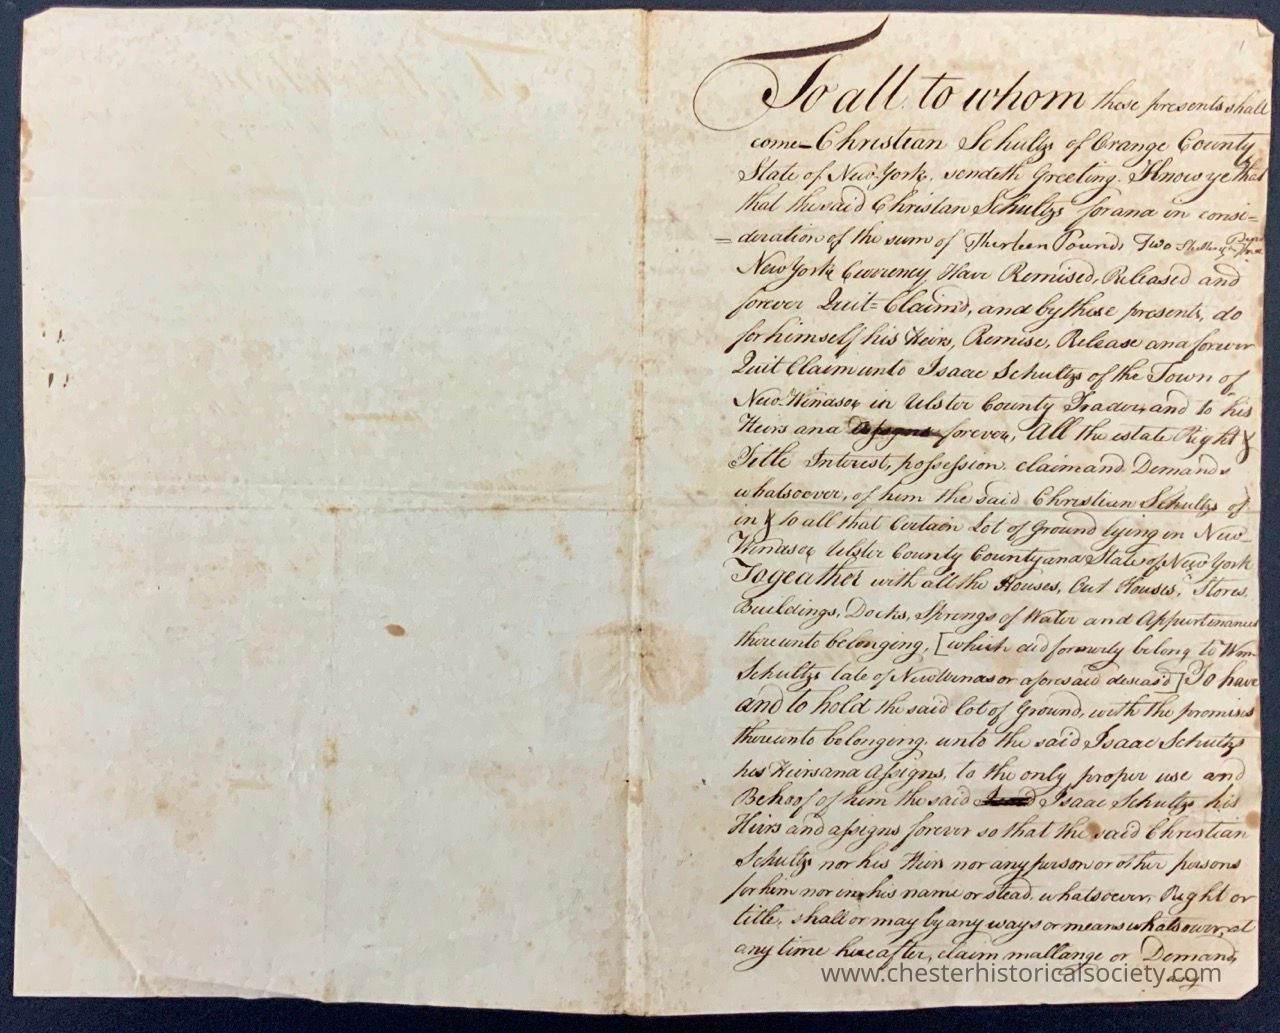 To all to whom these presents shall
come Christian Schultz of Orange County
State of New-York, sendeth Greeting. Know ye that
that the said Christian Schultz for and in consi=
=deration of the sum of Thirteen Pounds Two Shillings
New York Currency Have Remised, Released and
forever Quit=Claim'd, and by these presents, do
for himself his Heirs, Remise, Release and forever
Quit Claim unto Isaac Schultz of the Town of
New-Windsor in Ulster County Trader, and to his
Heirs and Assigns forever, All the estate Right &
Title Interest, possession claim and Demands
whatsoever, of him the said Christian Schultz of
in & to all that Certain Lot of Ground lying in New-
Windsor Ulster County County and State of New York
Togeather with all the Houses, Out Houses, Stores
Buildings, Docks, Springs of Water and Appurtenances
thereunto belonging, [which did formerly belong to Wm
Schultz late of Newwindsor aforesaid deseas'd] To have
and to hold the said lot of Ground, with the promises
thereunto belonging unto the said Isaac Schultz
his Heirs and Assigns, to the only proper use and
Behoof of him the said Isaac Schultz his
Heirs and assigns forever so that the said Christian
Schultz nor his Heirs nor any person or other persons
for him nor in his name or stead whatsoever, Right or
title, shall or may by any ways or means whatsoever, at
any time hereafter, claim mallange or Demand,
any
www.chesterhistoricalsociety.com